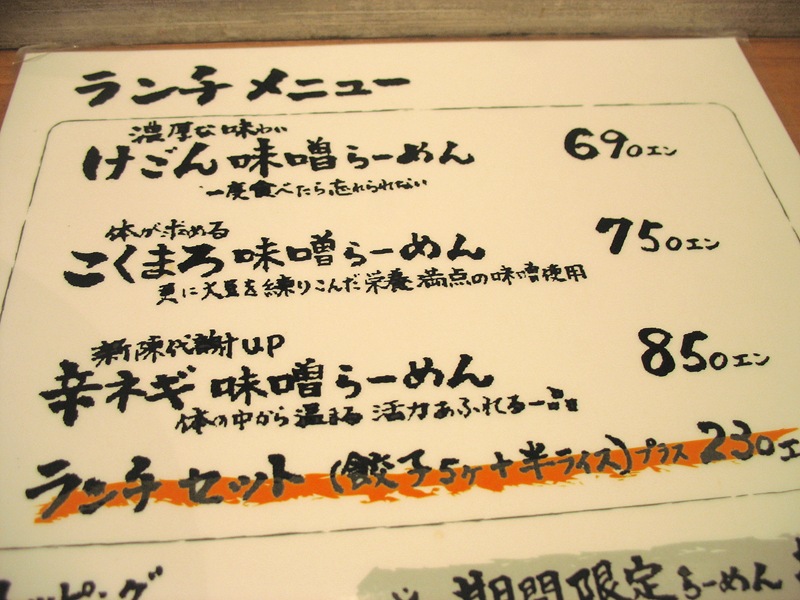 ランチメニュー
濃厚な味わい
けごん味噌らーめん 690エン
一度食べたら忘れられない
体が求める
こくまろ味噌らーめん 750エン
更に大豆を練りこんだ栄養満点の味噌使用
新陳代謝UP
辛ネギ味噌らーめん 850エン
体の中から温まる 活力あふれる一品
ランチセット(餃子5ヶ+半ライス)プラス230エ
トッピング 期間限定らーめん